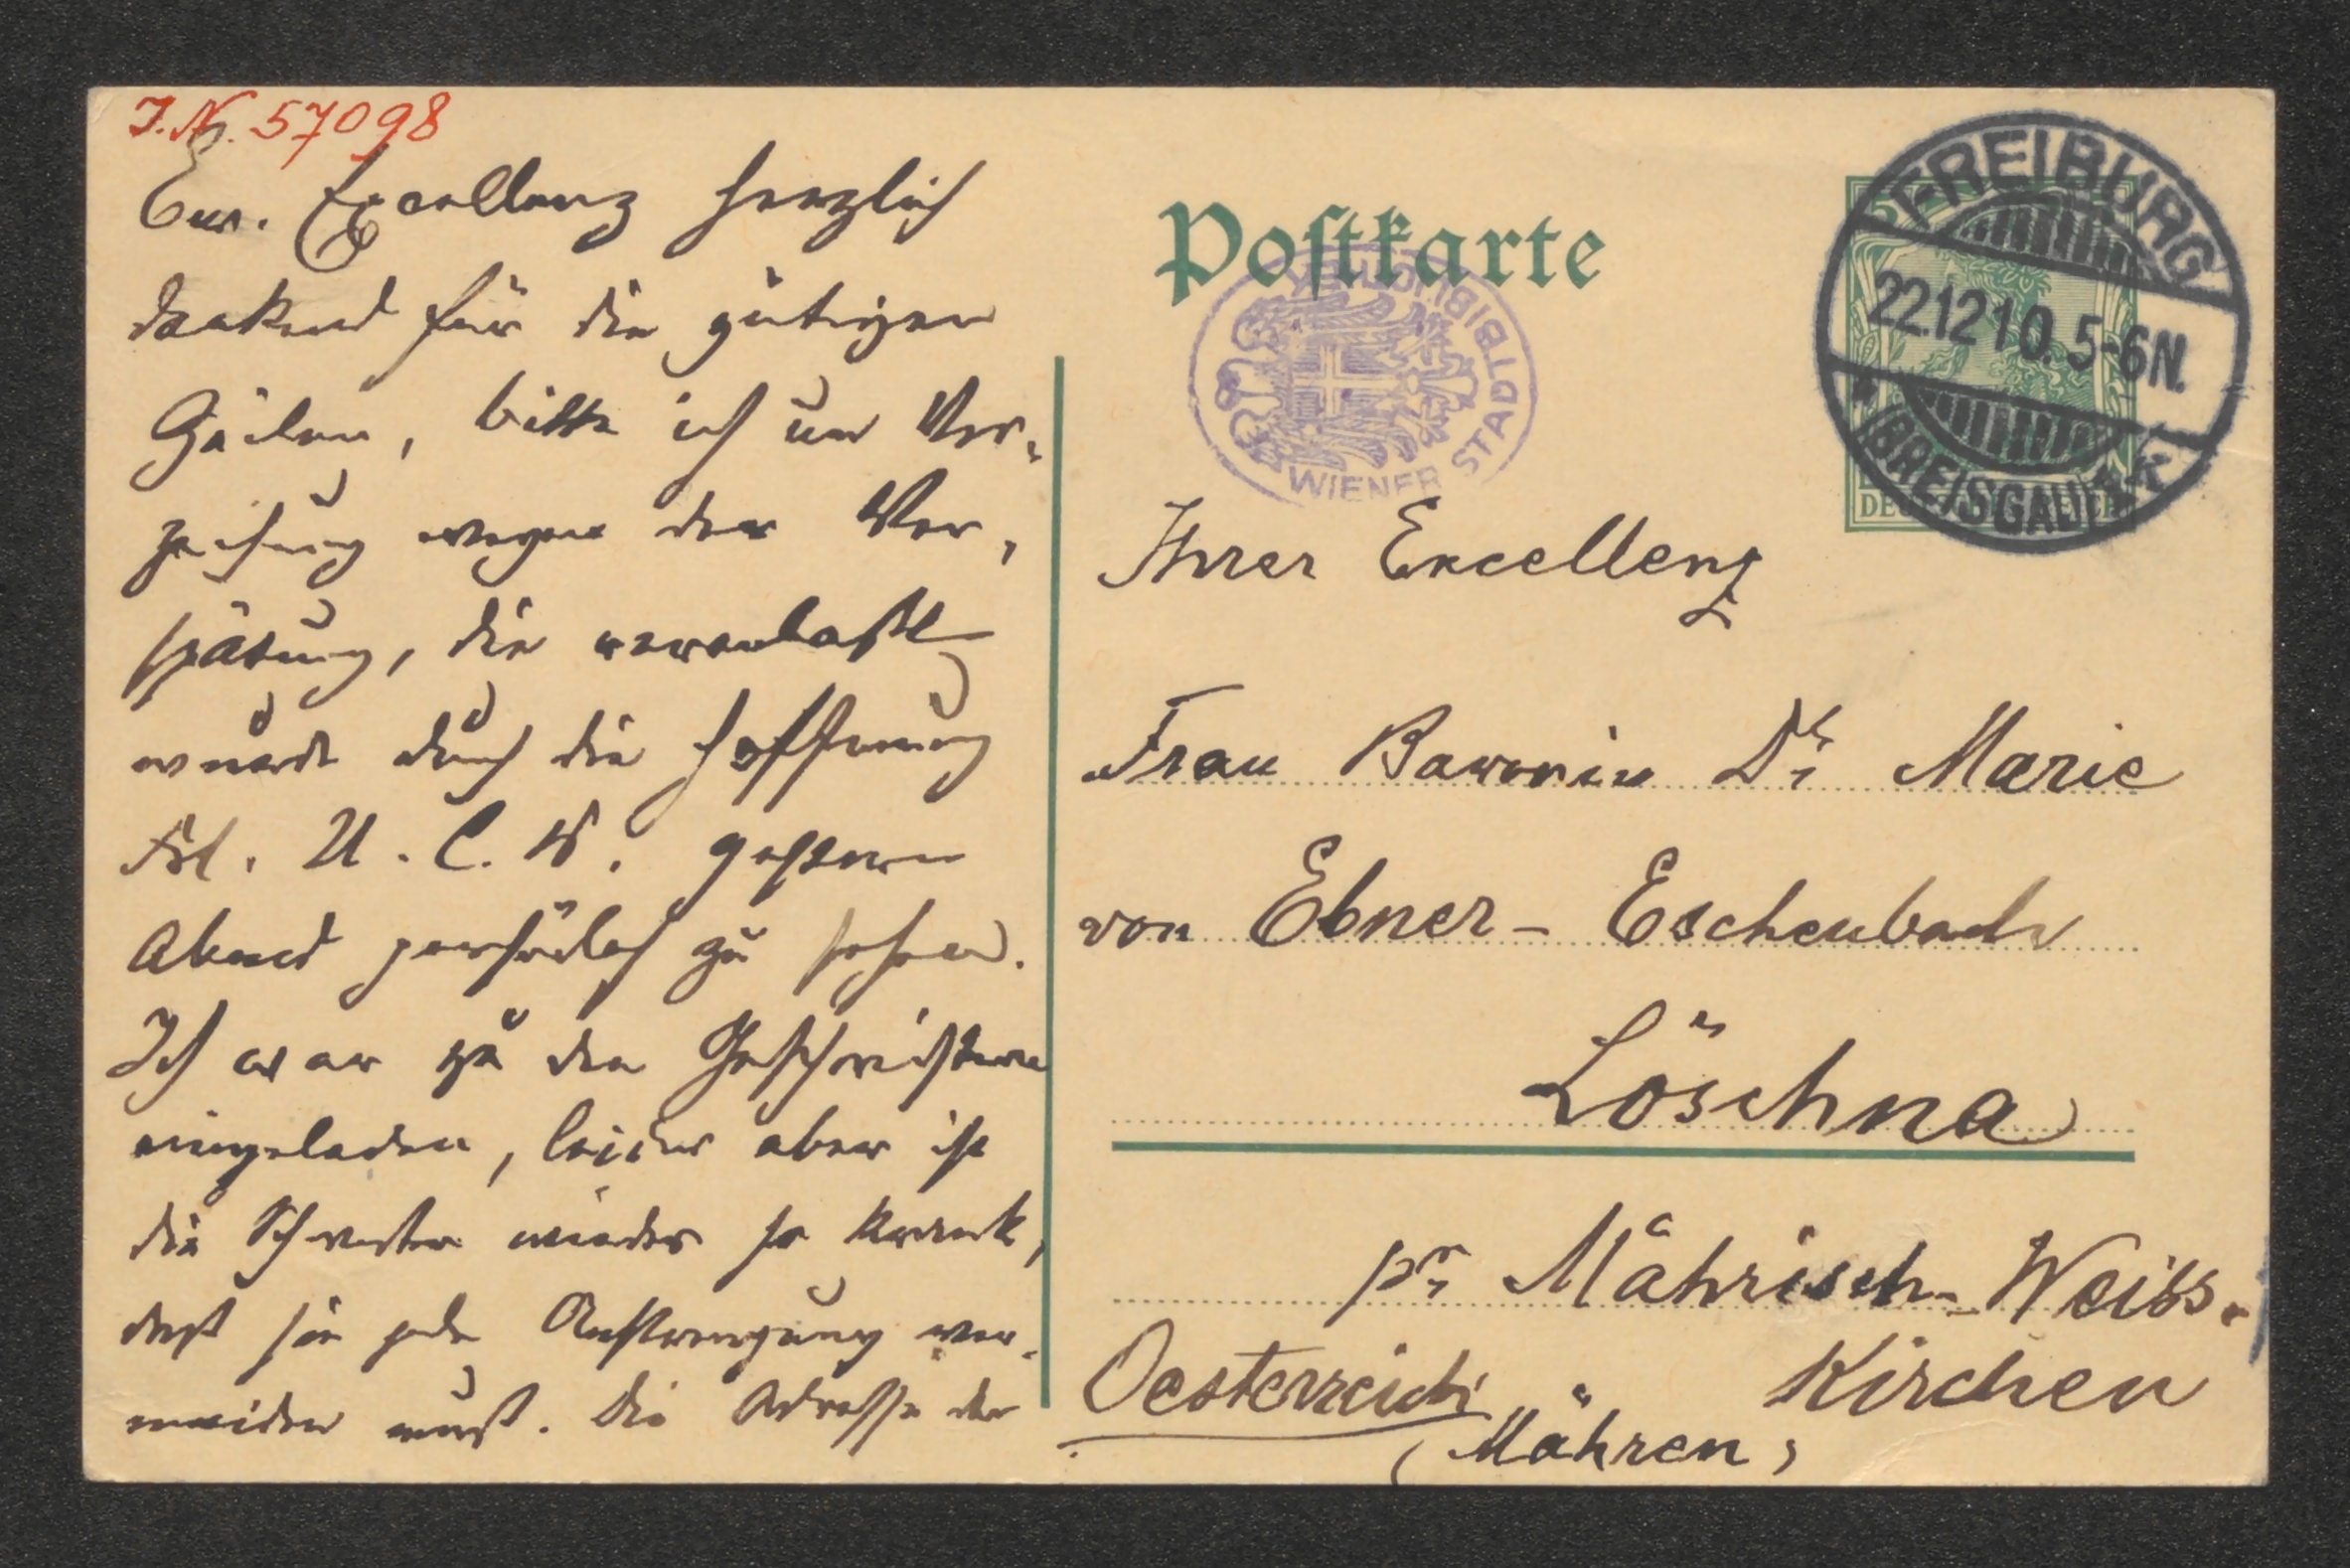 I.N. 57098
Eur. Excellenz herzlich
dankend für die gütigen
Zeilen, bitte ich um Ver-
zeihung wegen der Ver-
spätung, die veranlaßt
wurde durch die Hoffnung
Frl. U. C. W. gestern
Abend persönlich zu sehen.
Ich war zu den Geschwistern
eingeladen, leider aber ist
die Schwester wieder so krank,
daß sie jede Anstrengung ver-
meiden muß. Die Adresse der
Postkarte
WIENER STADTBIBLIOTHEK
FREIBURG
22.12.10. 5-6N.
BREISGAU
DEUTSCHES REICH
Ihrer Excellenz
Frau Baronin Dr Marie
von Ebner-Eschenbach
Löschna
pr Mährisch-Weiss-
Kirchen
Oesterreich
(Mähren)